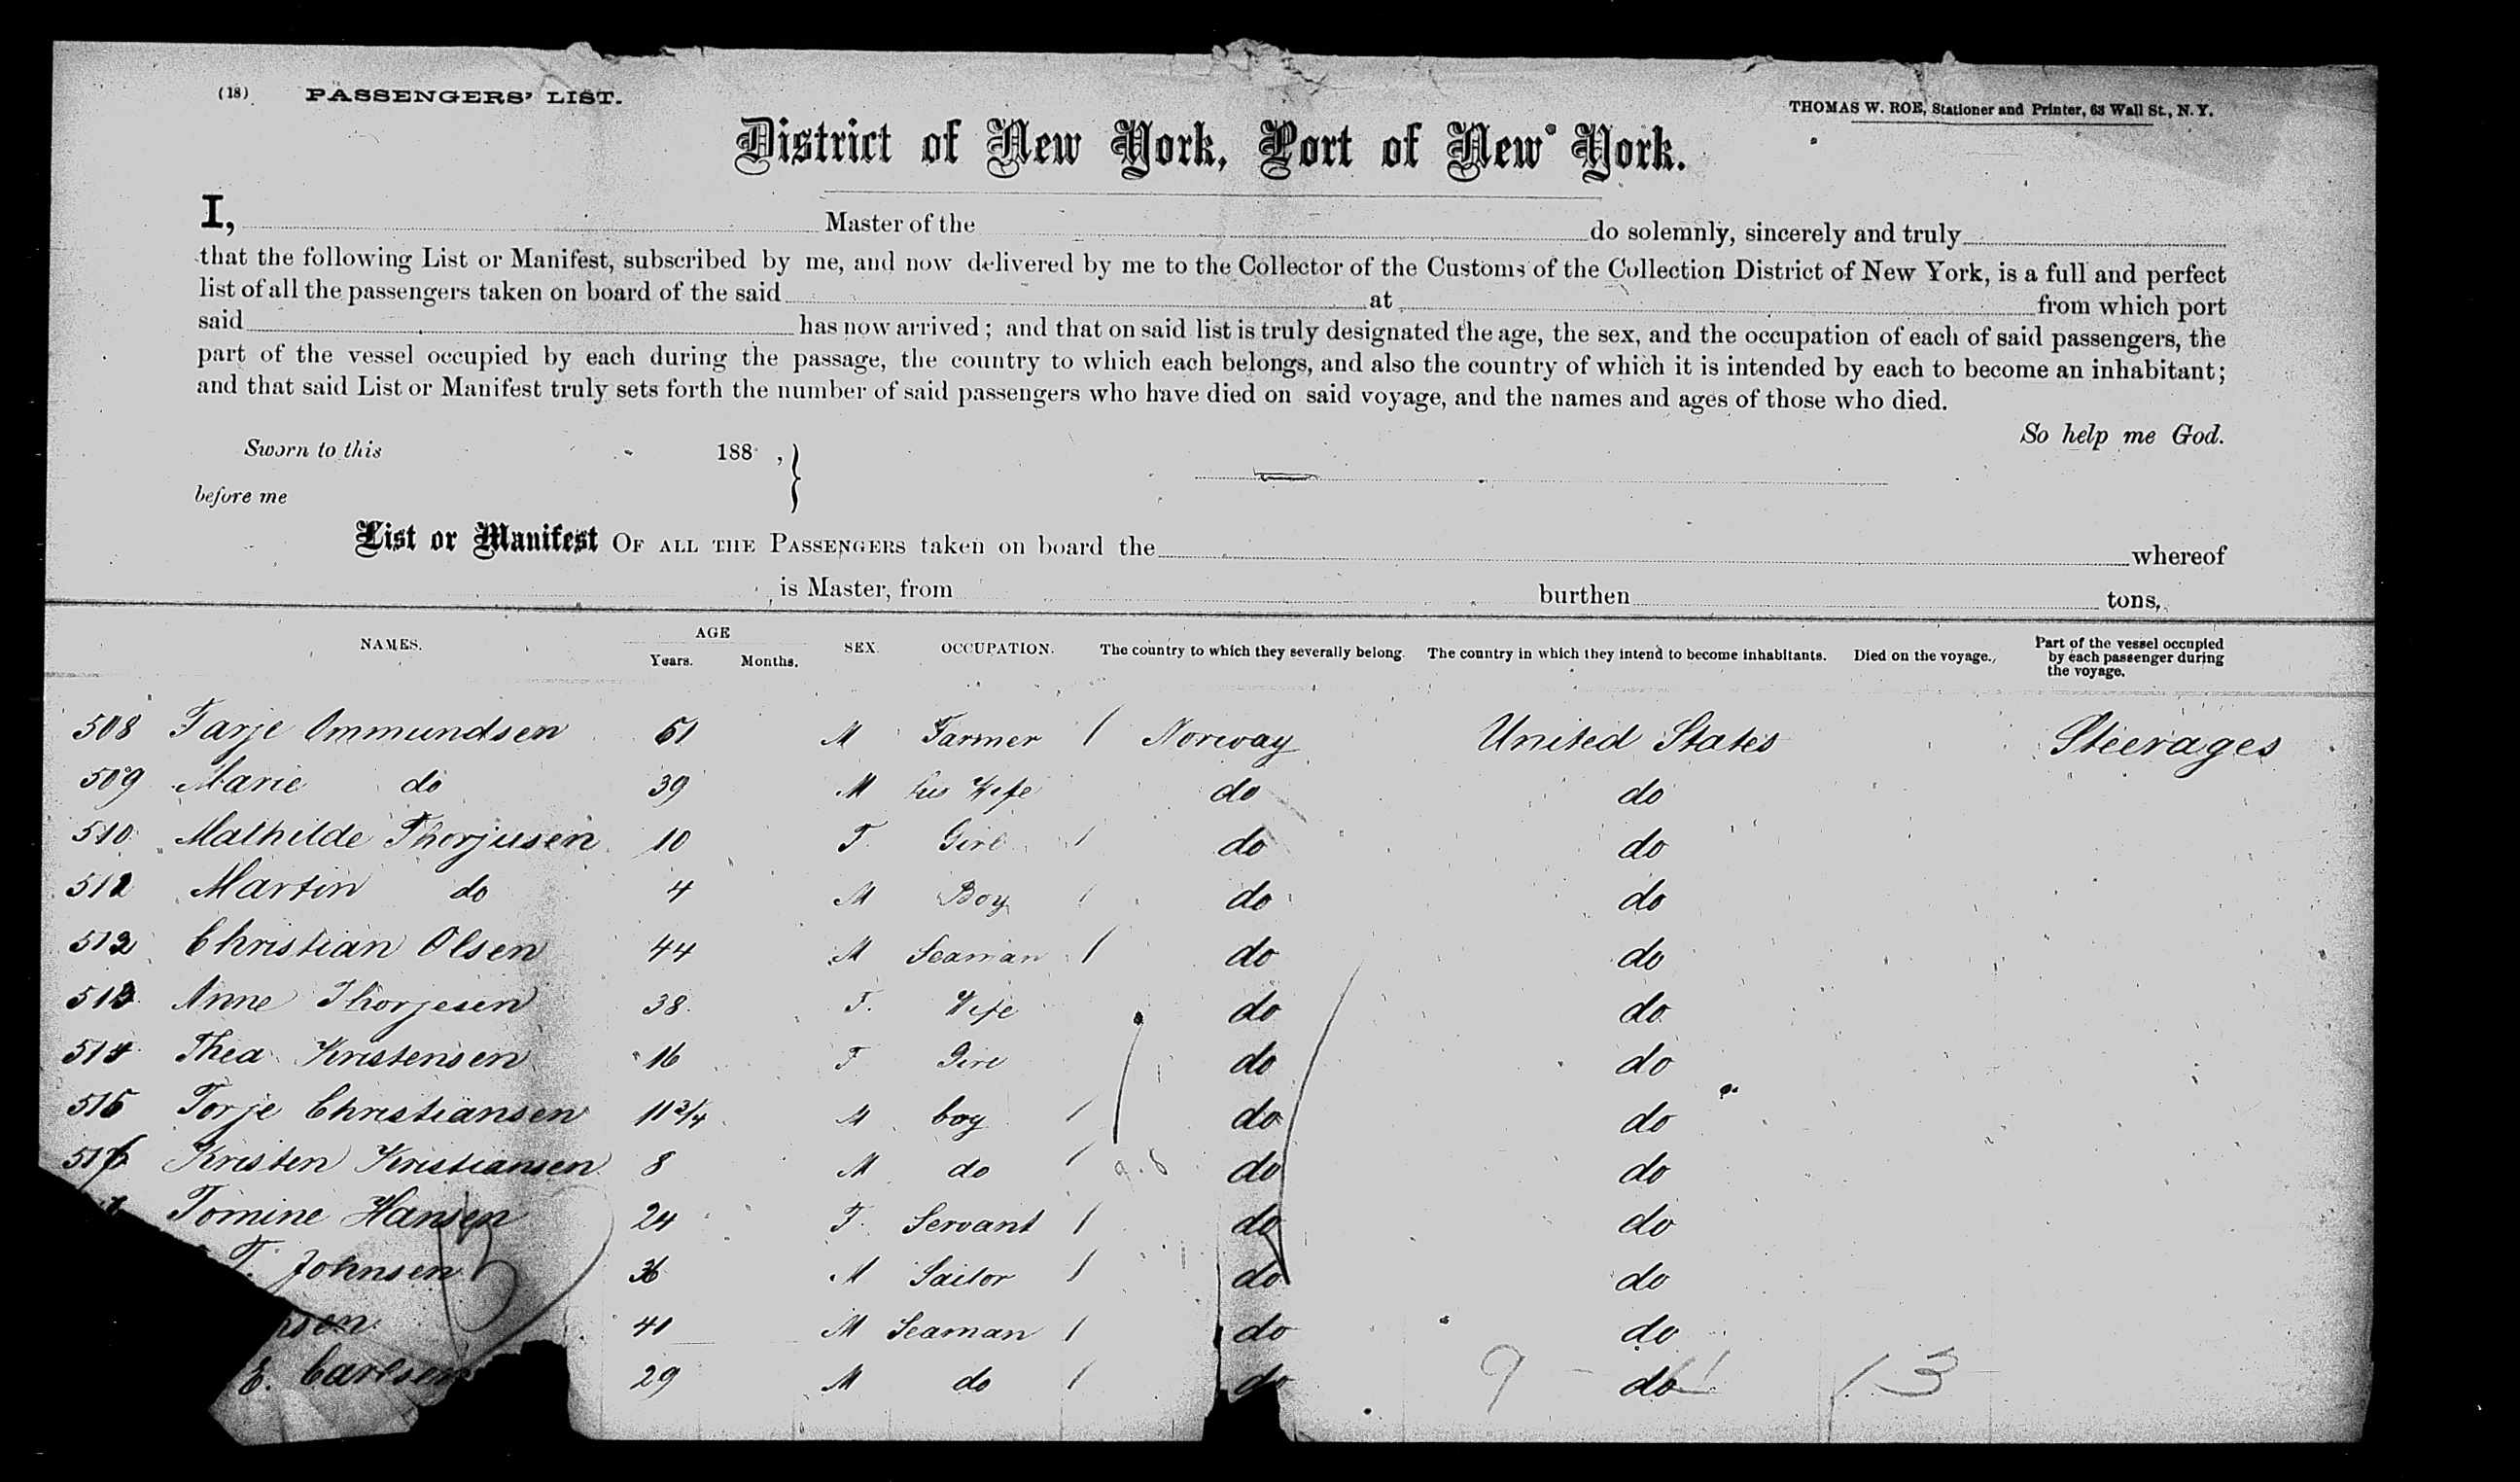 (18) PASSENGERS' LIST.
THOMAS W. ROE, Stationer and Printer, 63 Wall St., N.Y.
District of New York, Port of New York.
I, Master of the do solemnly, sincerely and truly
that the following List or Manifest, subscribed by me, and now delivered by me to the Collector of the Customs of the Collection District of New York, is a full and perfect
list of all the passengers taken on board of the said at from which port
said has now arrived; and that on said list is truly designated the age, the sex, and the occupation of each of said passengers, the
part of the vessel occupied by each during the passage, the country to which each belongs, and also the country of which it is intended by each to become an inhabitant;
and that said List or Manifest truly sets forth the number of said passengers who have died on said voyage, and the names and ages of those who died.
So help me God.
Sworn to this 188 ,
before me
List or Manifest OF ALL THE PASSENGERS taken on board the whereof
is Master, from burthen tons,
NAMES. AGE Years. Months. SEX. OCCUPATION. The country to which they severally belong. The country in which they intend to become inhabitants. Died on the voyage. Part of the vessel occupied by each passenger during the voyage.
508 Tarje Ommundsen 51 M Farmer / Norway United States Steerages
509 Marie do 39 M his Wife do do
510 Mathilde Thorjusen 10 F. Girl / do do
512 Martin do 4 M Boy / do do
512 Christian Olsen 44 M Seaman / do do
513 Anne Thorjesen 38 F. Wife do do
514 Thea Kristensen 16 F Girl do do
515 Torje Christiansen 11 3/4 M boy / do do
516 Kristen Kristiansen 8 M do / do do
Tomine Hansen 24 F. Servant / do do
T. Johnsen 36 M Sailor / do do
sen 41 M Seaman / do do
E. Carlsen 29 M do / do do
9 - 13